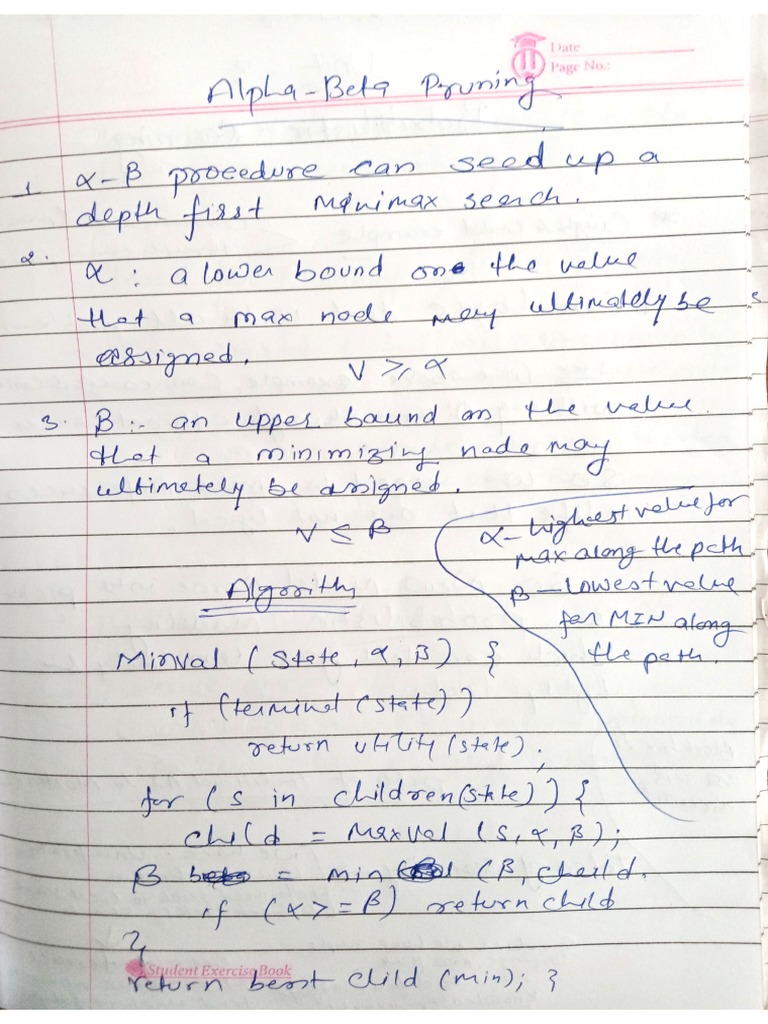 Date
Page No.:
Alpha-Beta Pruning
1. α-β procedure can seed up a
depth first Minimax search.
2.
α: a lower bound on the value
that a max node may ultimately be
assigned.
V ≥ α
3. β:- an upper bound on the value
that a minimizing node may
ultimately be assigned.
V ≤ β
α-highest value for
max along the path
β-lowest value
for MIN along
the path.
Algorithm
Minval (State, α, β) {
if (terminal (state))
return utility (state);
for (s in children(state)) {
child = MaxVal (s, α, β);
β = min (β, child.
if (α >= β) return child
}
Student Exercise Book
return best child (min); }